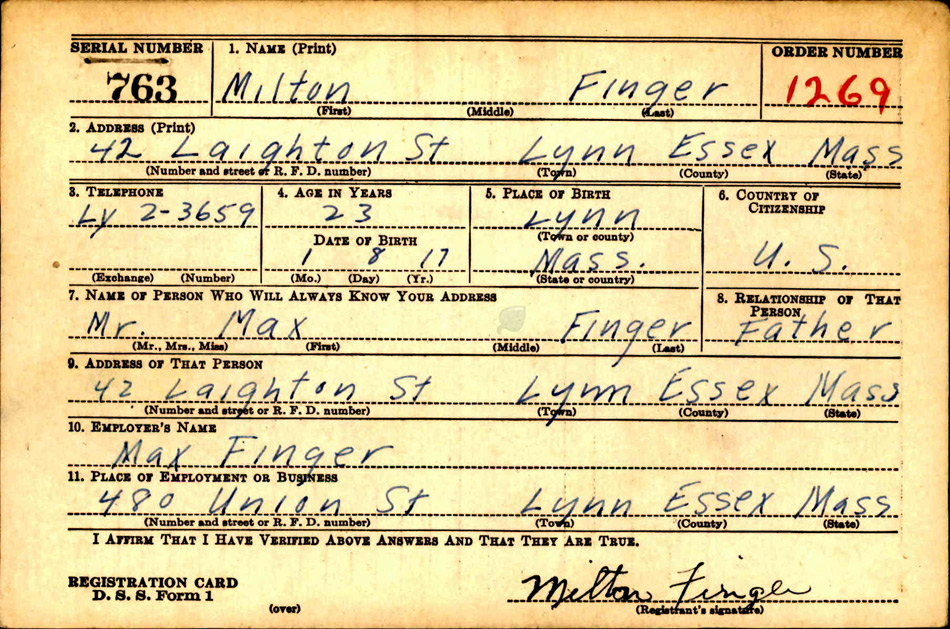 SERIAL NUMBER 1. NAME (Print) ORDER NUMBER
763 Milton Finger 1269
(First) (Middle) (Last)
2. ADDRESS (Print)
42 Laighton St Lynn Essex Mass
(Number and street or R. F. D. number) (Town) (County) (State)
3. TELEPHONE 4. AGE IN YEARS 5. PLACE OF BIRTH 6. COUNTRY OF
CITIZENSHIP
Ly 2-3659 23 Lynn
(Town or county)
DATE OF BIRTH
1 8 17 Mass. U. S.
(Exchange) (Number) (Mo.) (Day) (Yr.) (State or country)
7. NAME OF PERSON WHO WILL ALWAYS KNOW YOUR ADDRESS 8. RELATIONSHIP OF THAT
PERSON
Mr. Max Finger Father
(Mr., Mrs., Miss) (First) (Middle) (Last)
9. ADDRESS OF THAT PERSON
42 Laighton St Lynn Essex Mass
(Number and street or R. F. D. number) (Town) (County) (State)
10. EMPLOYER'S NAME
Max Finger
11. PLACE OF EMPLOYMENT OR BUSINESS
480 Union St Lynn Essex Mass
(Number and street or R. F. D. number) (Town) (County) (State)
I AFFIRM THAT I HAVE VERIFIED ABOVE ANSWERS AND THAT THEY ARE TRUE.
REGISTRATION CARD
D. S. S. Form 1
(over)
Milton Finger
(Registrant's signature)